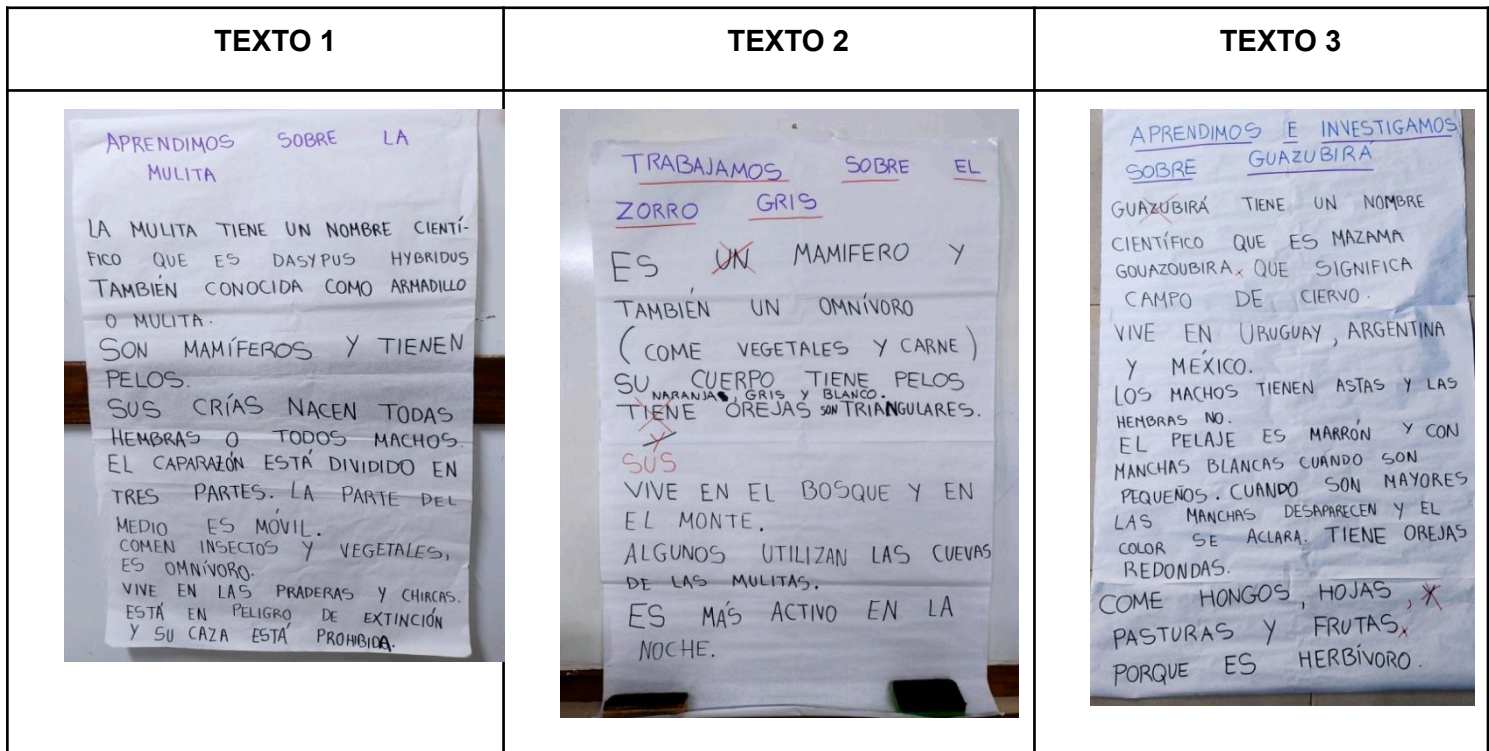 TEXTO 1
APRENDIMOS SOBRE LA
MULITA
LA MULITA TIENE UN NOMBRE CIENTÍ-
FICO QUE ES DASYPUS HYBRIDUS
TAMBIÉN CONOCIDA COMO ARMADILLO
O MULITA.
SON MAMÍFEROS Y TIENEN
PELOS.
SUS CRÍAS NACEN TODAS
HEMBRAS O TODOS MACHOS.
EL CAPARAZÓN ESTÁ DIVIDIDO EN
TRES PARTES. LA PARTE DEL
MEDIO ES MÓVIL.
COMEN INSECTOS Y VEGETALES,
ES OMNÍVORO.
VIVE EN LAS PRADERAS Y CHIRCAS.
ESTÁ EN PELIGRO DE EXTINCIÓN
Y SU CAZA ESTÁ PROHIBIDA.
TEXTO 2
TRABAJAMOS SOBRE EL
ZORRO GRIS
ES UN MAMIFERO Y
TAMBIÉN UN OMNÍVORO
(COME VEGETALES Y CARNE)
SU CUERPO TIENE PELOS
NARANJAS, GRIS Y BLANCO.
TIENE OREJAS SON TRIANGULARES.
Y
SUS
VIVE EN EL BOSQUE Y EN
EL MONTE.
ALGUNOS UTILIZAN LAS CUEVAS
DE LAS MULITAS.
ES MÁS ACTIVO EN LA
NOCHE.
TEXTO 3
APRENDIMOS E INVESTIGAMOS
SOBRE GUAZUBIRÁ
GUAZUBIRÁ TIENE UN NOMBRE
CIENTÍFICO QUE ES MAZAMA
GOUAZOUBIRA, QUE SIGNIFICA
CAMPO DE CIERVO.
VIVE EN URUGUAY, ARGENTINA
Y MÉXICO.
LOS MACHOS TIENEN ASTAS Y LAS
HEMBRAS NO.
EL PELAJE ES MARRÓN Y CON
MANCHAS BLANCAS CUANDO SON
PEQUEÑOS. CUANDO SON MAYORES
LAS MANCHAS DESAPARECEN Y EL
COLOR SE ACLARA. TIENE OREJAS
REDONDAS.
COME HONGOS, HOJAS, Y
PASTURAS Y FRUTAS,
PORQUE ES HERBÍVORO.